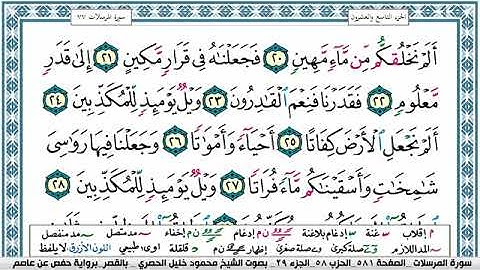 الجزء التاسع والعشرون
سورة المرسلات ٧٧
أَلَمْ نَخْلُقكُّم مِّن مَّآءٍ مَّهِينٍ ٢٠ فَجَعَلْنَٰهُ فِى قَرَارٍ مَّكِينٍ ٢١ إِلَىٰ قَدَرٍ
مَّعْلُومٍ ٢٢ فَقَدَرْنَا فَنِعْمَ ٱلْقَٰدِرُونَ ٢٣ وَيْلٌ يَوْمَئِذٍ لِّلْمُكَذِّبِينَ ٢٤
أَلَمْ نَجْعَلِ ٱلْأَرْضَ كِفَاتًا ٢٥ أَحْيَآءً وَأَمْوَٰتًا ٢٦ وَجَعَلْنَا فِيهَا رَوَٰسِىَ
شَٰمِخَٰتٍ وَأَسْقَيْنَٰكُم مَّآءً فُرَاتًا ٢٧ وَيْلٌ يَوْمَئِذٍ لِّلْمُكَذِّبِينَ ٢٨
م إقلاب غنة إدغام بلاغنة ن م إدغام ن م إخفاء مد متصل مد منفصل
مد اللازم صلة كبرى صلة صغرى إظهار ن م قلقلة اوى طبيعي اللون الأزرق لا يلفظ
سورة المرسلات _ الصفحة ٥٨١ _ الحزب ٥٨ _ الجزء ٢٩ _ بصوت الشيخ محمود خليل الحصري _ بالقصر _ برواية حفص عن عاصم